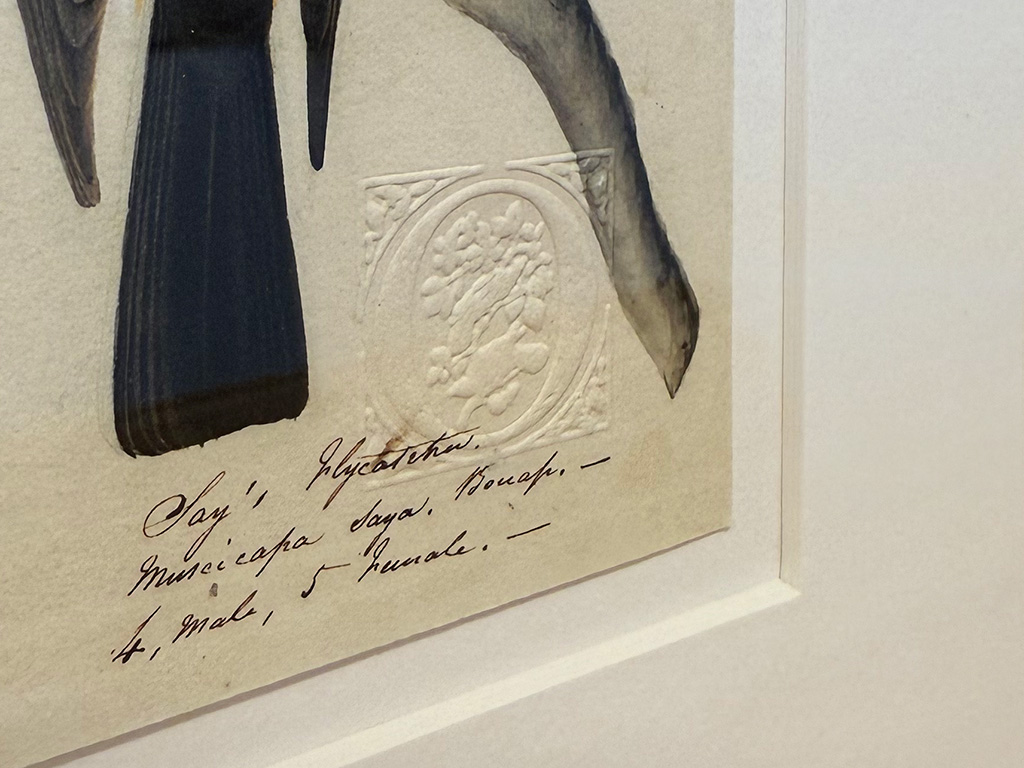 Say's Flycatcher.
Muscicapa Saya. Bonap. —
4, Male, 5 Female. —